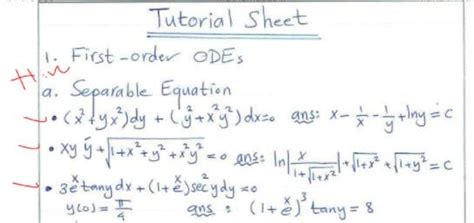 Tutorial Sheet
1. First-order ODEs
H.w
a. Separable Equation
• (x²+yx²)dy + (y²+x²y²)dx=0 ans: x - 1/x - 1/y + lny = c
• xy ý + √(1+x²+y²+x²y²) = 0 ans: ln|x/(1+√(1+x²))| + √(1+x²) + √(1+y²) = C
• 3eˣ tany dx + (1+eˣ) sec²y dy = 0
y(0) = π/4 ans: (1+eˣ)³ tany = 8